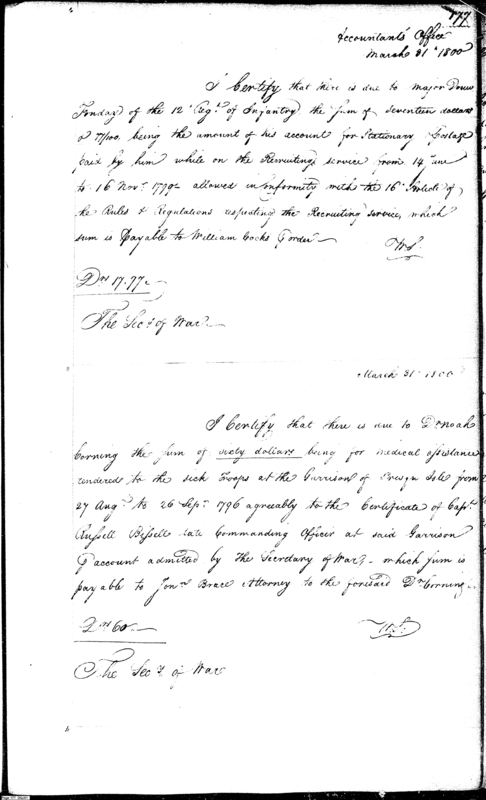 177
Accountants Office
March 31st 1800
I Certify that there is due to Major Douw
Fonday of the 12th Regt of Infantry the sum of seventeen dollars
& 77/100 being the amount of his account for Stationary & Postage
paid by him while on the Recruiting service from 14 June
to 16 Novr 1799 allowed in Conformity with the 16th Article of
the Rules & Regulations respecting the Recruiting service, which
sum is Payable to William Cocks or order
WS.
Drs 17.77
The Secy of War
March 31st 1800
I Certify that there is due to Donoah
Corning the sum of sixty dollars being for medical assistance
rendered to the sick Troops at the Garrison of Presqu Isle from
27 Augt to 26 Sept 1796 agreeably to the Certificate of Capt
Russell Bissell late Commanding Officer at said Garrison
& account admitted by the Secretary of War, which sum is
payable to Jonn Brace Attorney to the foresaid Dr Corning
Drs 60
WS.
The Secy of War